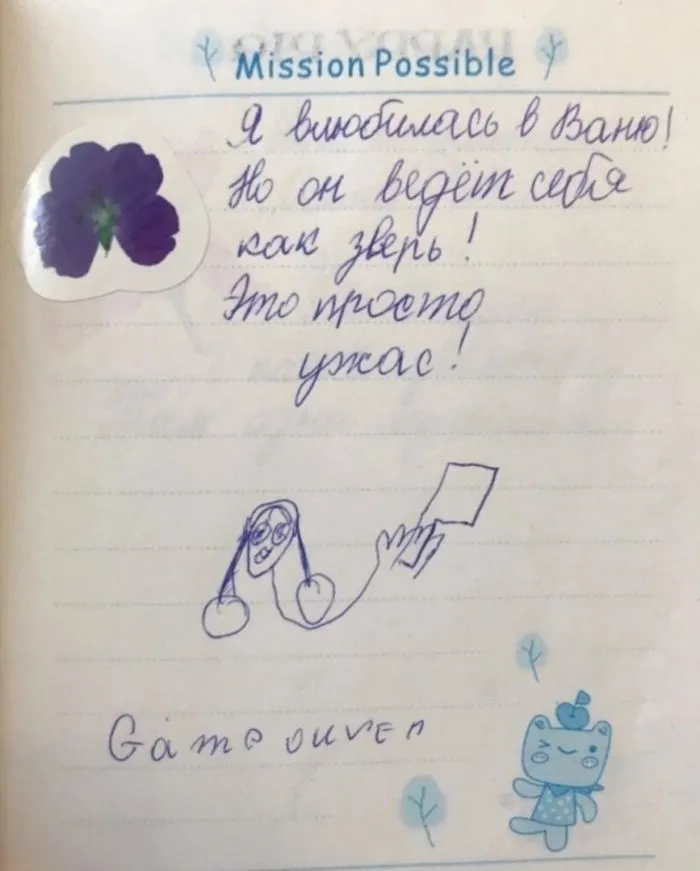 Mission Possible
Я влюбилась в Ваню!
Но он ведёт себя
как зверь!
Это просто
ужас!
Game